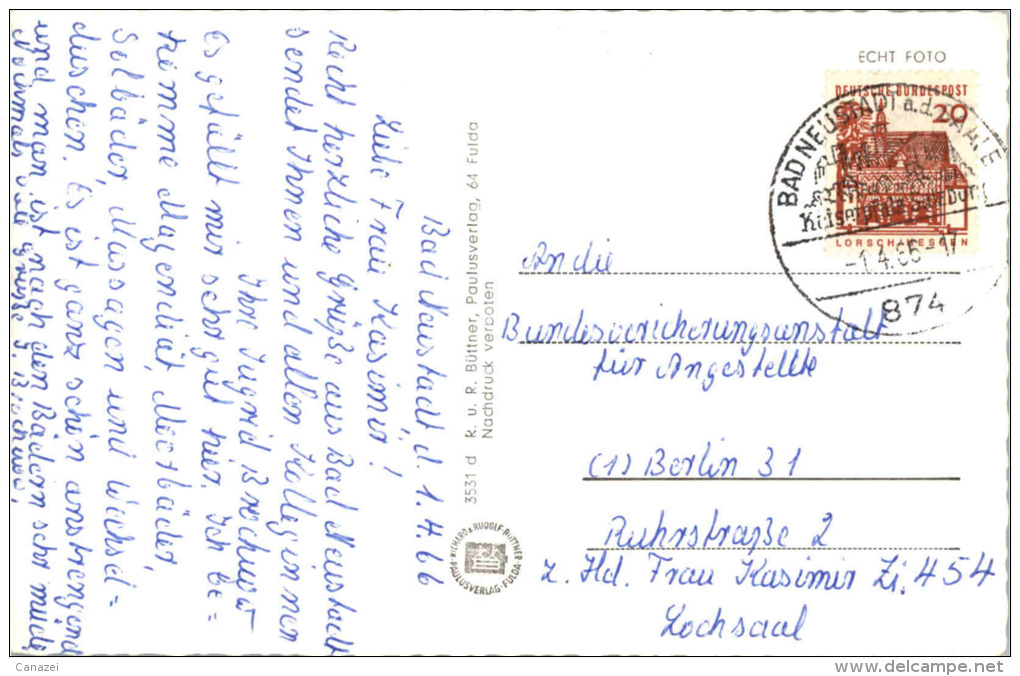 Bad Neustadt, d. 1.4.66
Liebe Frau Kasimir!
Recht herzliche Grüße aus Bad Neustadt
sendet Ihnen und allen Kolleginnen
Ihre Ingrid
Es gefällt mir sehr gut hier. Ich be=
komme Magendiät, Moorbäder,
Solbäder, Massagen und Wechsel=
duschen. Es ist ganz schön anstrengend
und man ist nach den Bädern sehr müde
Nochmals viele Grüße
3531 d R. u. R. Büttner, Paulusverlag, 64 Fulda
Nachdruck verboten
RICHARD & RUDOLF BÜTTNER
PAULUSVERLAG · FULDA
ECHT FOTO
DEUTSCHE BUNDESPOST
20
LORSCH/HESSEN
BAD NEUSTADT a.d. SAALE
-1.4.66-17
874
An die
Bundesversicherungsanstalt
für Angestellte
(1) Berlin 31
Ruhrstraße 2
z. Hd. Frau Kasimir Zi. 454
Lochsaal
Canazei
www.delcampe.net